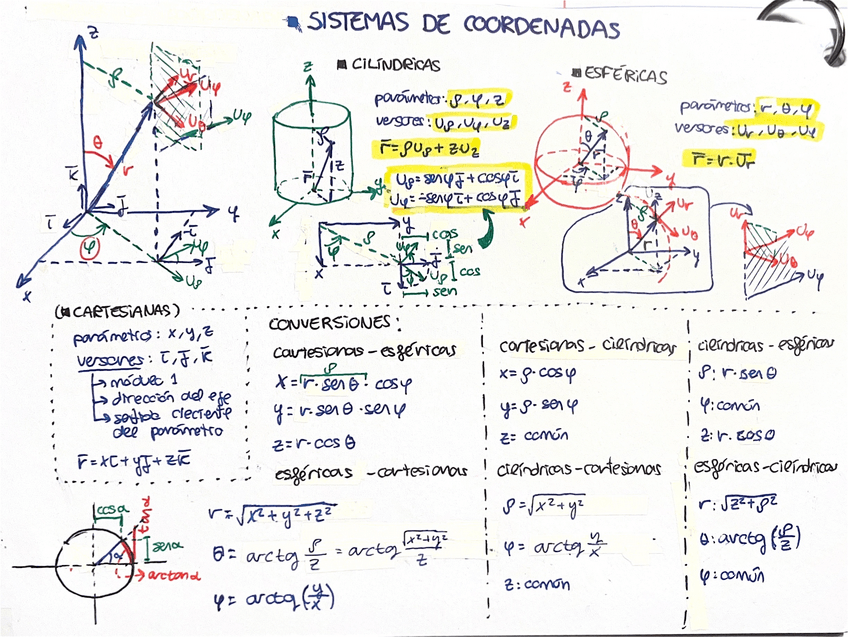 SISTEMAS DE COORDENADAS
z
ρ
Ur
Uφ
θ
Uθ
Uφ
r
K̄
J̄
ῑ
y
φ
ῑ
φ
J̄
Uρ
x
CILÍNDRICAS
z
ρ
z
r̄
y
x
parámetros: ρ, φ, z
versores: Uρ, Uφ, Uz
r̄ = ρUρ + zUz
Uρ = senφ J̄ + cosφ ῑ
Uφ = -senφ ῑ + cosφ J̄
y
cos
φ
ρ
sen
J̄
x
Uρ
cos
ῑ
sen
ESFÉRICAS
z
ρ
θ
r
φ
y
x
parámetros: r, θ, φ
versores: Ur, Uθ, Uφ
r̄ = r·Ūr
z
Uz
ρ
Ur
θ
Uθ
r
y
x
Ur
Uφ
Uθ
Uφ
(CARTESIANAS)
parámetros: x, y, z
versores: ῑ, J̄, K̄
módulo 1
dirección del eje
sentido creciente
del parámetro
r̄ = xῑ + yJ̄ + zK̄
CONVERSIONES:
cartesianas - esféricas
ρ
x = r·senθ · cosφ
y = r·senθ·senφ
z = r·cosθ
esféricas - cartesianas
r = √x² + y² + z²
θ = arctg ρ/z = arctg √x²+y²/z
φ = arctg (y/x)
cartesianas - cilíndricas
x = ρ·cosφ
y = ρ·senφ
z = común
cilíndricas - cartesianas
ρ = √x² + y²
φ = arctg y/x
z: común
cilíndricas - esféricas
ρ: r·senθ
φ: común
z: r·cosθ
esféricas - cilíndricas
r: √z² + ρ²
θ: arctg (ρ/z)
φ: común
cosα
tanα
senα
α
arctanα